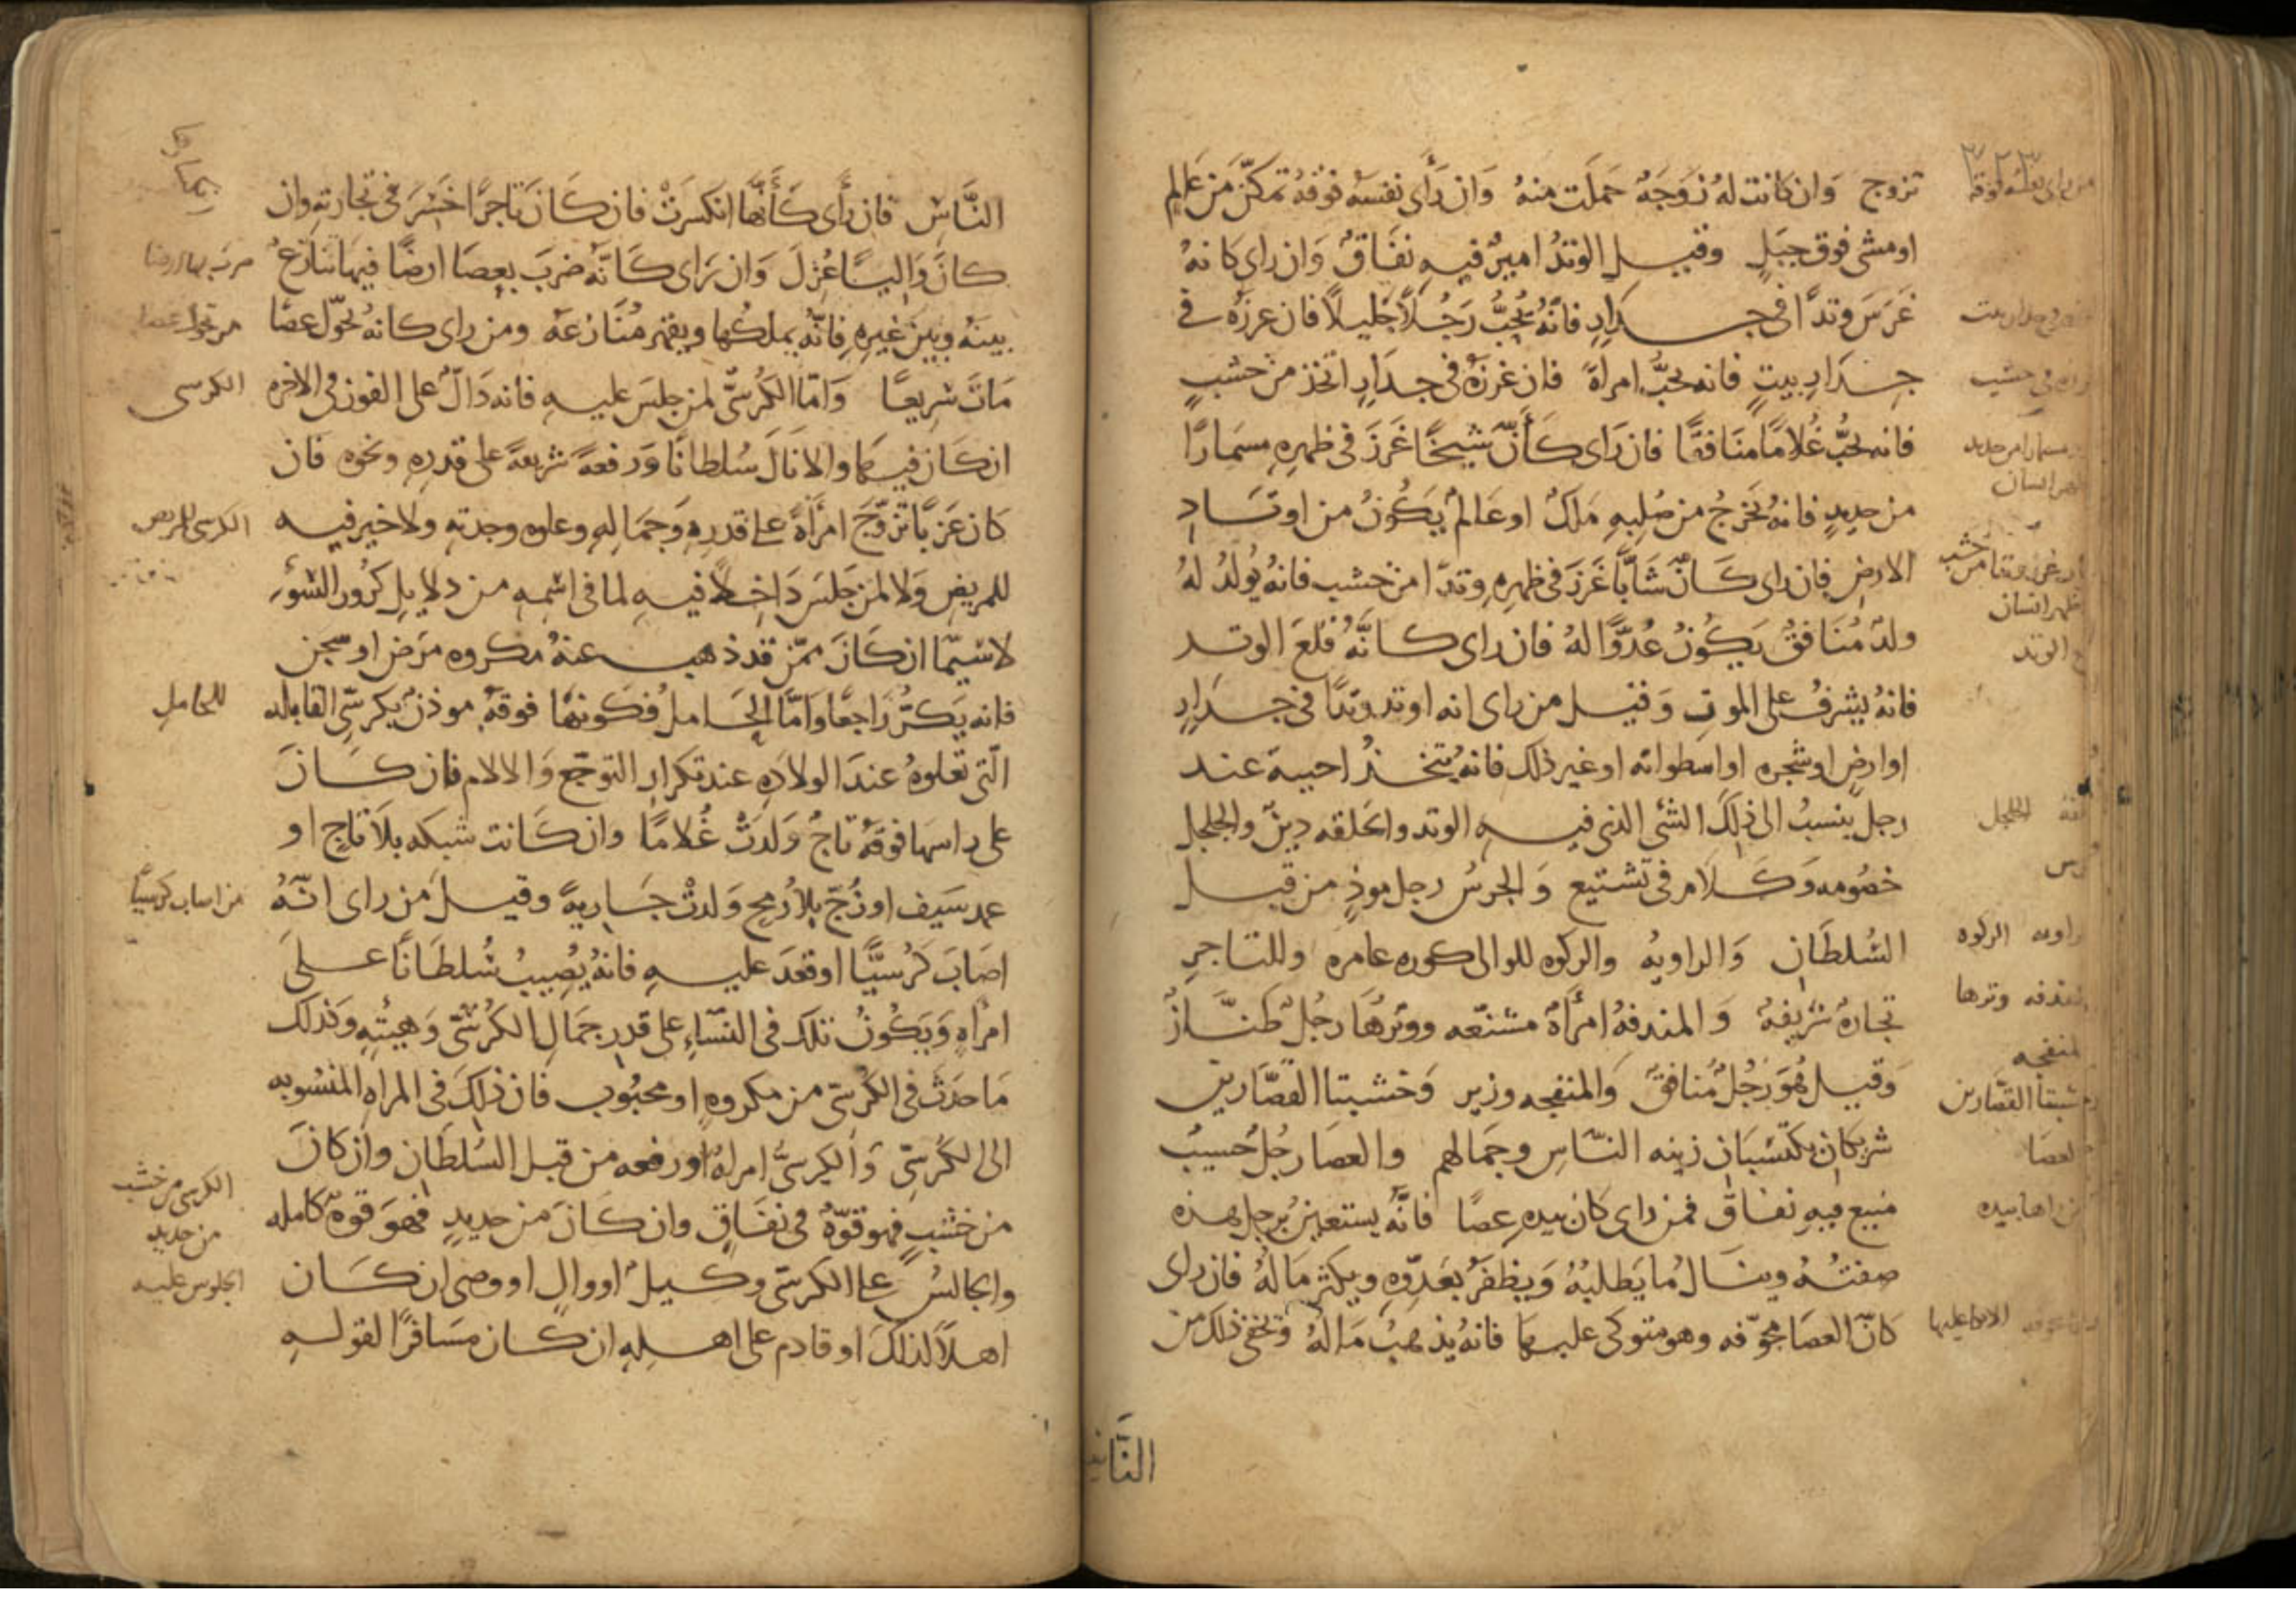 تزوج وان كانت له زوجة حملت منه وان رأى نفسه فوقه تمكّن من عالم
او مشى فوق جبل وقيل الوتد امير فيه نفاق وان راى كانه
غرس وتدًا فى جدار فانه يحبّ رجلًا جليلًا فان غرزه فى
جدار بيت فانه يحبّ امراة فان غرزه فى جدار اتخذ من خشب
فانه يحبّ غلامًا منافقًا فان راى كأنّ شيخًا غرز فى ظهره مسمارًا
من حديد فانه يخرج من صلبه ملك او عالم يكون من اوتاد
الارض فان راى كانّ شابًّا غرز فى ظهره وتدًا من خشب فانه يولد له
ولد منافق يكون عدوًّا له فان راى كانّه قلع الوتد
فانه يشرف على الموت وقيل من راى انه اوتد وتدًا فى جدار
او ارض او شجره او اسطوانه او غير ذلك فانه يتخذ احبية عند
رجل ينسب الى ذلك الشئ الذى فيه الوتد والحلقه دين والجلجل
خصومه وكلام فى تشنيع والجرس رجل موذ من قبل
السلطان والراويه والركوه للوالى كوره عامره وللتاجر
تجارة شريفة والمندفة امرأة مشنّعه ووترها رجل طنّاز
وقيل هو رجل منافق والمنفجه وزير وخشبتا القصّارين
شريكان يكتسبان زينه النّاس وجمالهم والعصا رجل حسيب
منيع فيه نفاق فمن راى كان بيده عصًا فانّه يستعين برجل هذه
صفته وينال ما يطلبه ويظفر بعدّوه ويكثر ماله فان راى
كانّ العصا مجوّفه وهو متوكى عليها فانه يذهب ماله ويخفى ذلك من
النّاس فان رأى كأنّها انكسرت فان كان تاجرًا خسر فى تجارته وان
كان واليًا عزل وان راى كانّه ضرب بعصا ارضًا فيها تنازع
بينه وبين غيره فانّه يملكها ويقهر منازعه ومن راى كانه تحوّل عصًا
مات شريعًا وامّا الكرسىّ لمن جلس عليه فانه دالّ على الفوز فى الاخره
ان كان فيها والا نال سلطانًا ورفعة شريعة على قدره ونحوه فان
كان عزبًا تزوّج امرأة على قدره وجماله وعلوه وجدته ولا خير فيه
للمريض ولا لمن جلس داخلًا فيه لما فى اسمه من دلايل كرور السّوء
لا سيّما ان كان ممّن قد ذهب عنه مكروه مرض او سجن
فانه يكرّ راجعًا وامّا الحامل فكونها فوقه موذن بكرسىّ القابله
الّتى تعلوه عند الولاده عند تكرار التوجّع والالام فان كان
على راسها فوقه تاج ولدت غلامًا وان كانت شبكه بلا تاج او
غمد سيف او زجّ بلا رمح ولدت جارية وقيل من راى انّه
اصاب كرسيًّا او قعد عليه فانه يصيب سلطانًا على
امرأة ويكون تلك فى النسّاء على قدر جمال الكرسّى وهيئته وكذلك
ما حدث فى الكرسّى من مكروه او محبوب فان ذلك فى المراه المنسوبه
الى الكرسّى والكرسىّ امراه او رفعه من قبل السلطان وان كان
من خشب فهو قوّة فى نفاق وان كان من حديد فهو قوّة كامله
والجالس على الكرسّى وكيل او وال او وصى ان كان
اهلًا لذلك او قادم على اهله ان كان مسافرًا لقوله
من حديد
الوتد
الجلجل
الركوه
وترها
القصّارين
العصا
الكرسى
الكرسى للمريض
للحامل
من اصاب كرسيًّا
الكرسى من خشب
من حديد
الجلوس عليه